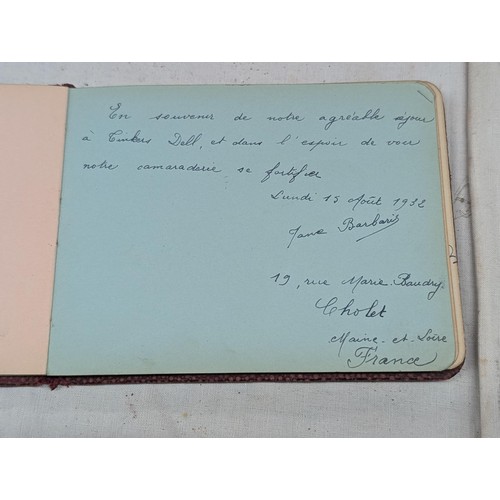 En souvenir de notre agréable séjour
à Tinkers Dell, et dans l'espoir de voir
notre camaraderie se fortifier
Lundi 15 Août 1932
Jane Barbarit
19, rue Marie-Baudry.
Cholet
Maine-et-Loire
France